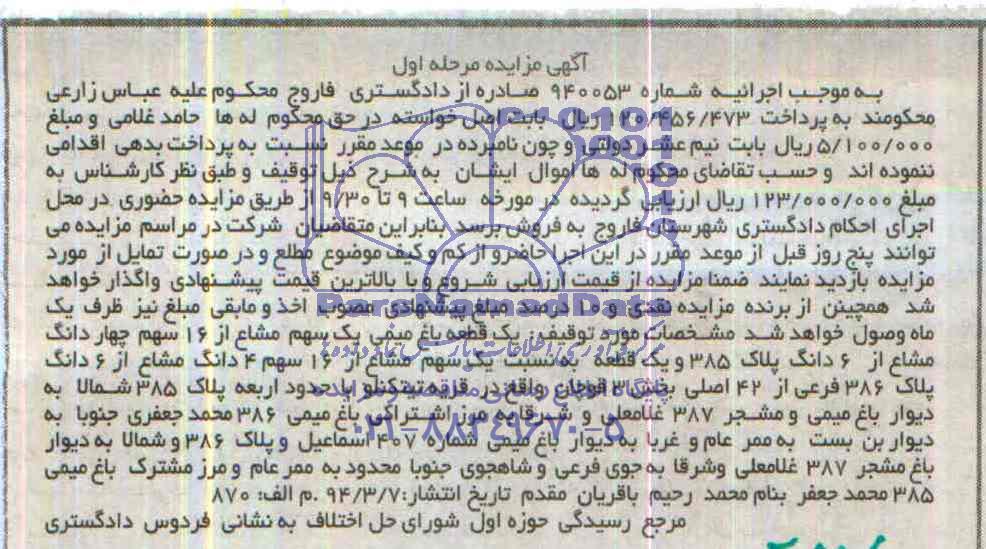 آگهی مزایده مرحله اول
به موجب اجرائیه شماره ۹۴۰۰۵۳ صادره از دادگستری فاروج محکوم علیه عباس زارعی
محکومند به پرداخت ۱۲۰/۴۵۶/۴۷۳ ریال بابت اصل خواسته در حق محکوم له ها حامد غلامی و مبلغ
۵/۱۰۰/۰۰۰ ریال بابت نیم عشر دولتی و چون نامبرده در موعد مقرر نسبت به پرداخت بدهی اقدامی
ننموده اند و حسب تقاضای محکوم له ها اموال ایشان به شرح ذیل توقیف و طبق نظر کارشناس به
مبلغ ۱۲۳/۰۰۰/۰۰۰ ریال ارزیابی گردیده در مورخه ساعت ۹ تا ۹/۳۰ از طریق مزایده حضوری در محل
اجرای احکام دادگستری شهرستان فاروج به فروش برسد بنابراین متقاضیان شرکت در مراسم مزایده می
توانند پنج روز قبل از موعد مقرر در این اجرا حاضر و از کم و کیف موضوع مطلع و در صورت تمایل از مورد
مزایده بازدید نمایند ضمنا مزایده از قیمت ارزیابی شروع و با بالاترین قیمت پیشنهادی واگذار خواهد
شد همچنین از برنده مزایده نقدی و ۱۰ درصد مبلغ پیشنهادی مصوب اخذ و مابقی مبلغ نیز ظرف یک
ماه وصول خواهد شد مشخصات مورد توقیف: یک قطعه باغ میمی یک سهم مشاع از ۱۶ سهم چهار دانگ
مشاع از ۶ دانگ پلاک ۳۸۵ و یک قطعه به نسبت یک سهم مشاع از ۱۶ سهم ۴ دانگ مشاع از ۶ دانگ
پلاک ۳۸۶ فرعی از ۴۲ اصلی بخش ۳ قوچان واقع در قریه تیتکنلو با حدود اربعه پلاک ۳۸۵ شمالا به
دیوار باغ میمی و مشجر ۳۸۷ غلامعلی و شرقا به مرز اشتراکی باغ میمی ۳۸۶ محمد جعفری جنوبا به
دیوار بن بست به ممر عام و غربا به دیوار باغ میمی شماره ۴۰۷ اسماعیل و پلاک ۳۸۶ و شمالا به دیوار
باغ مشجر ۳۸۷ غلامعلی وشرقا به جوی فرعی و شاهجوی جنوبا محدود به ممر عام و مرز مشترک باغ میمی
۳۸۵ محمد جعفر بنام محمد رحیم باقریان مقدم تاریخ انتشار:۹۴/۳/۷ .م الف: ۸۷۰
مرجع رسیدگی حوزه اول شورای حل اختلاف به نشانی فردوس دادگستری
ParsNamadData
۰۲۱-۸۸۳۴۹۶۷۰-۵